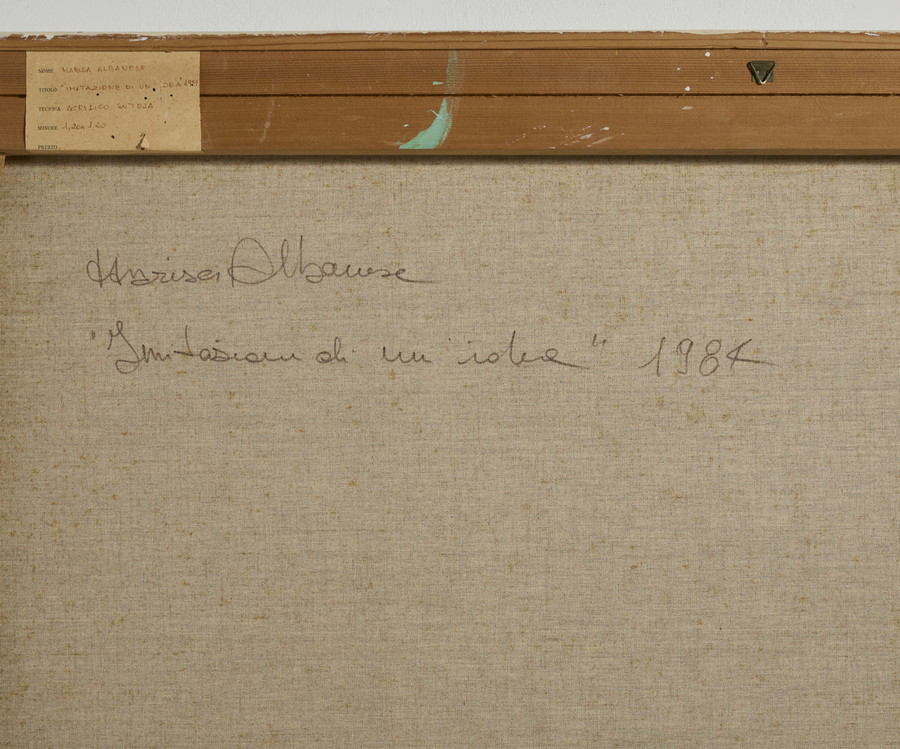 NOME MARISA ALBANESE
TITOLO "IMITAZIONE DI UN' IDEA"
TECNICA ACRILICO SU TELA
MISURE 1,20x120
PREZZO
2
Marisa Albanese
"Imitazione di un'idea" 1984